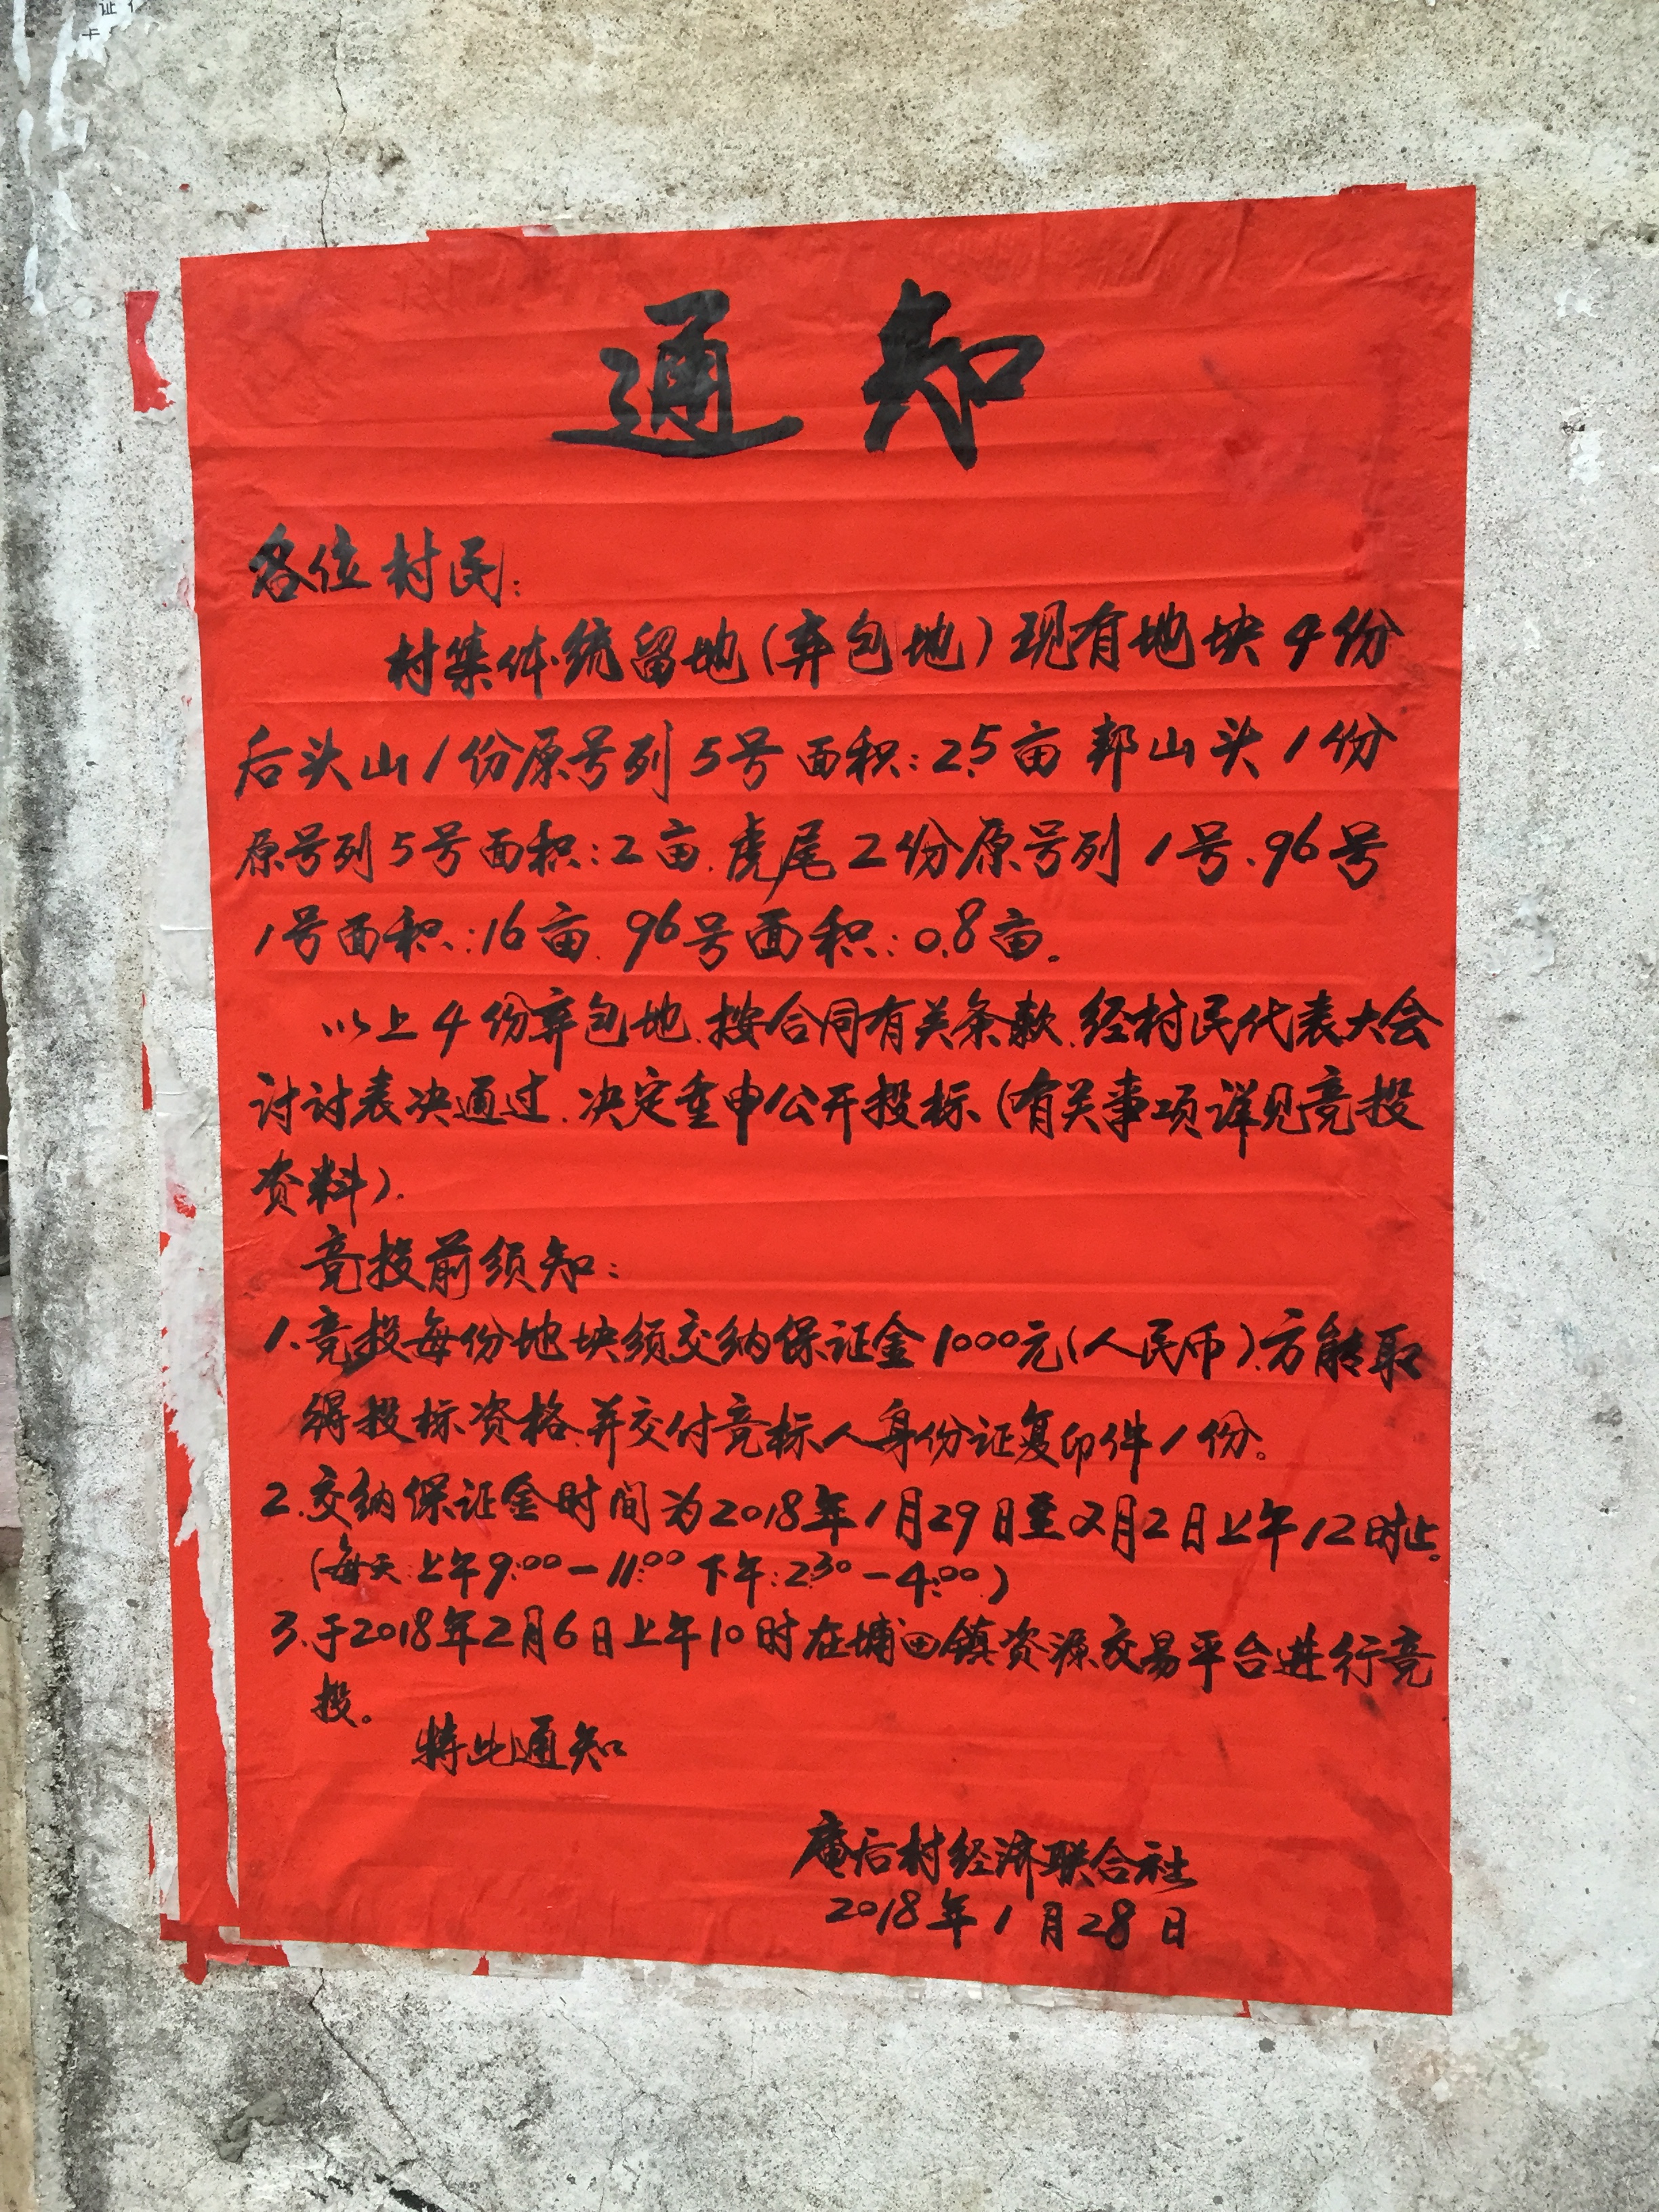 通知
各位村民:
村集体统留地(弃包地)现有地块4份
后头山1份原号列5号面积:2.5亩 邦山头1份
原号列5号面积:2亩.虎尾2份原号列1号.96号
1号面积:16亩.96号面积:0.8亩。
以上4份弃包地.按合同有关条款.经村民代表大会
讨讨表决通过.决定重申公开投标(有关事项详见竞投
资料).
竞投前须知:
1.竞投每份地块须交纳保证金1000元(人民币).方能取
得投标资格.并交付竞标人身份证复印件1份。
2.交纳保证金时间为2018年1月29日至2月2日上午12时止。
(每天:上午9:00-11:00 下午:2:30-4:00)
3.于2018年2月6日上午10时在埔田镇资源交易平台进行竞
投。
特此通知
庵后村经济联合社
2018年1月28日